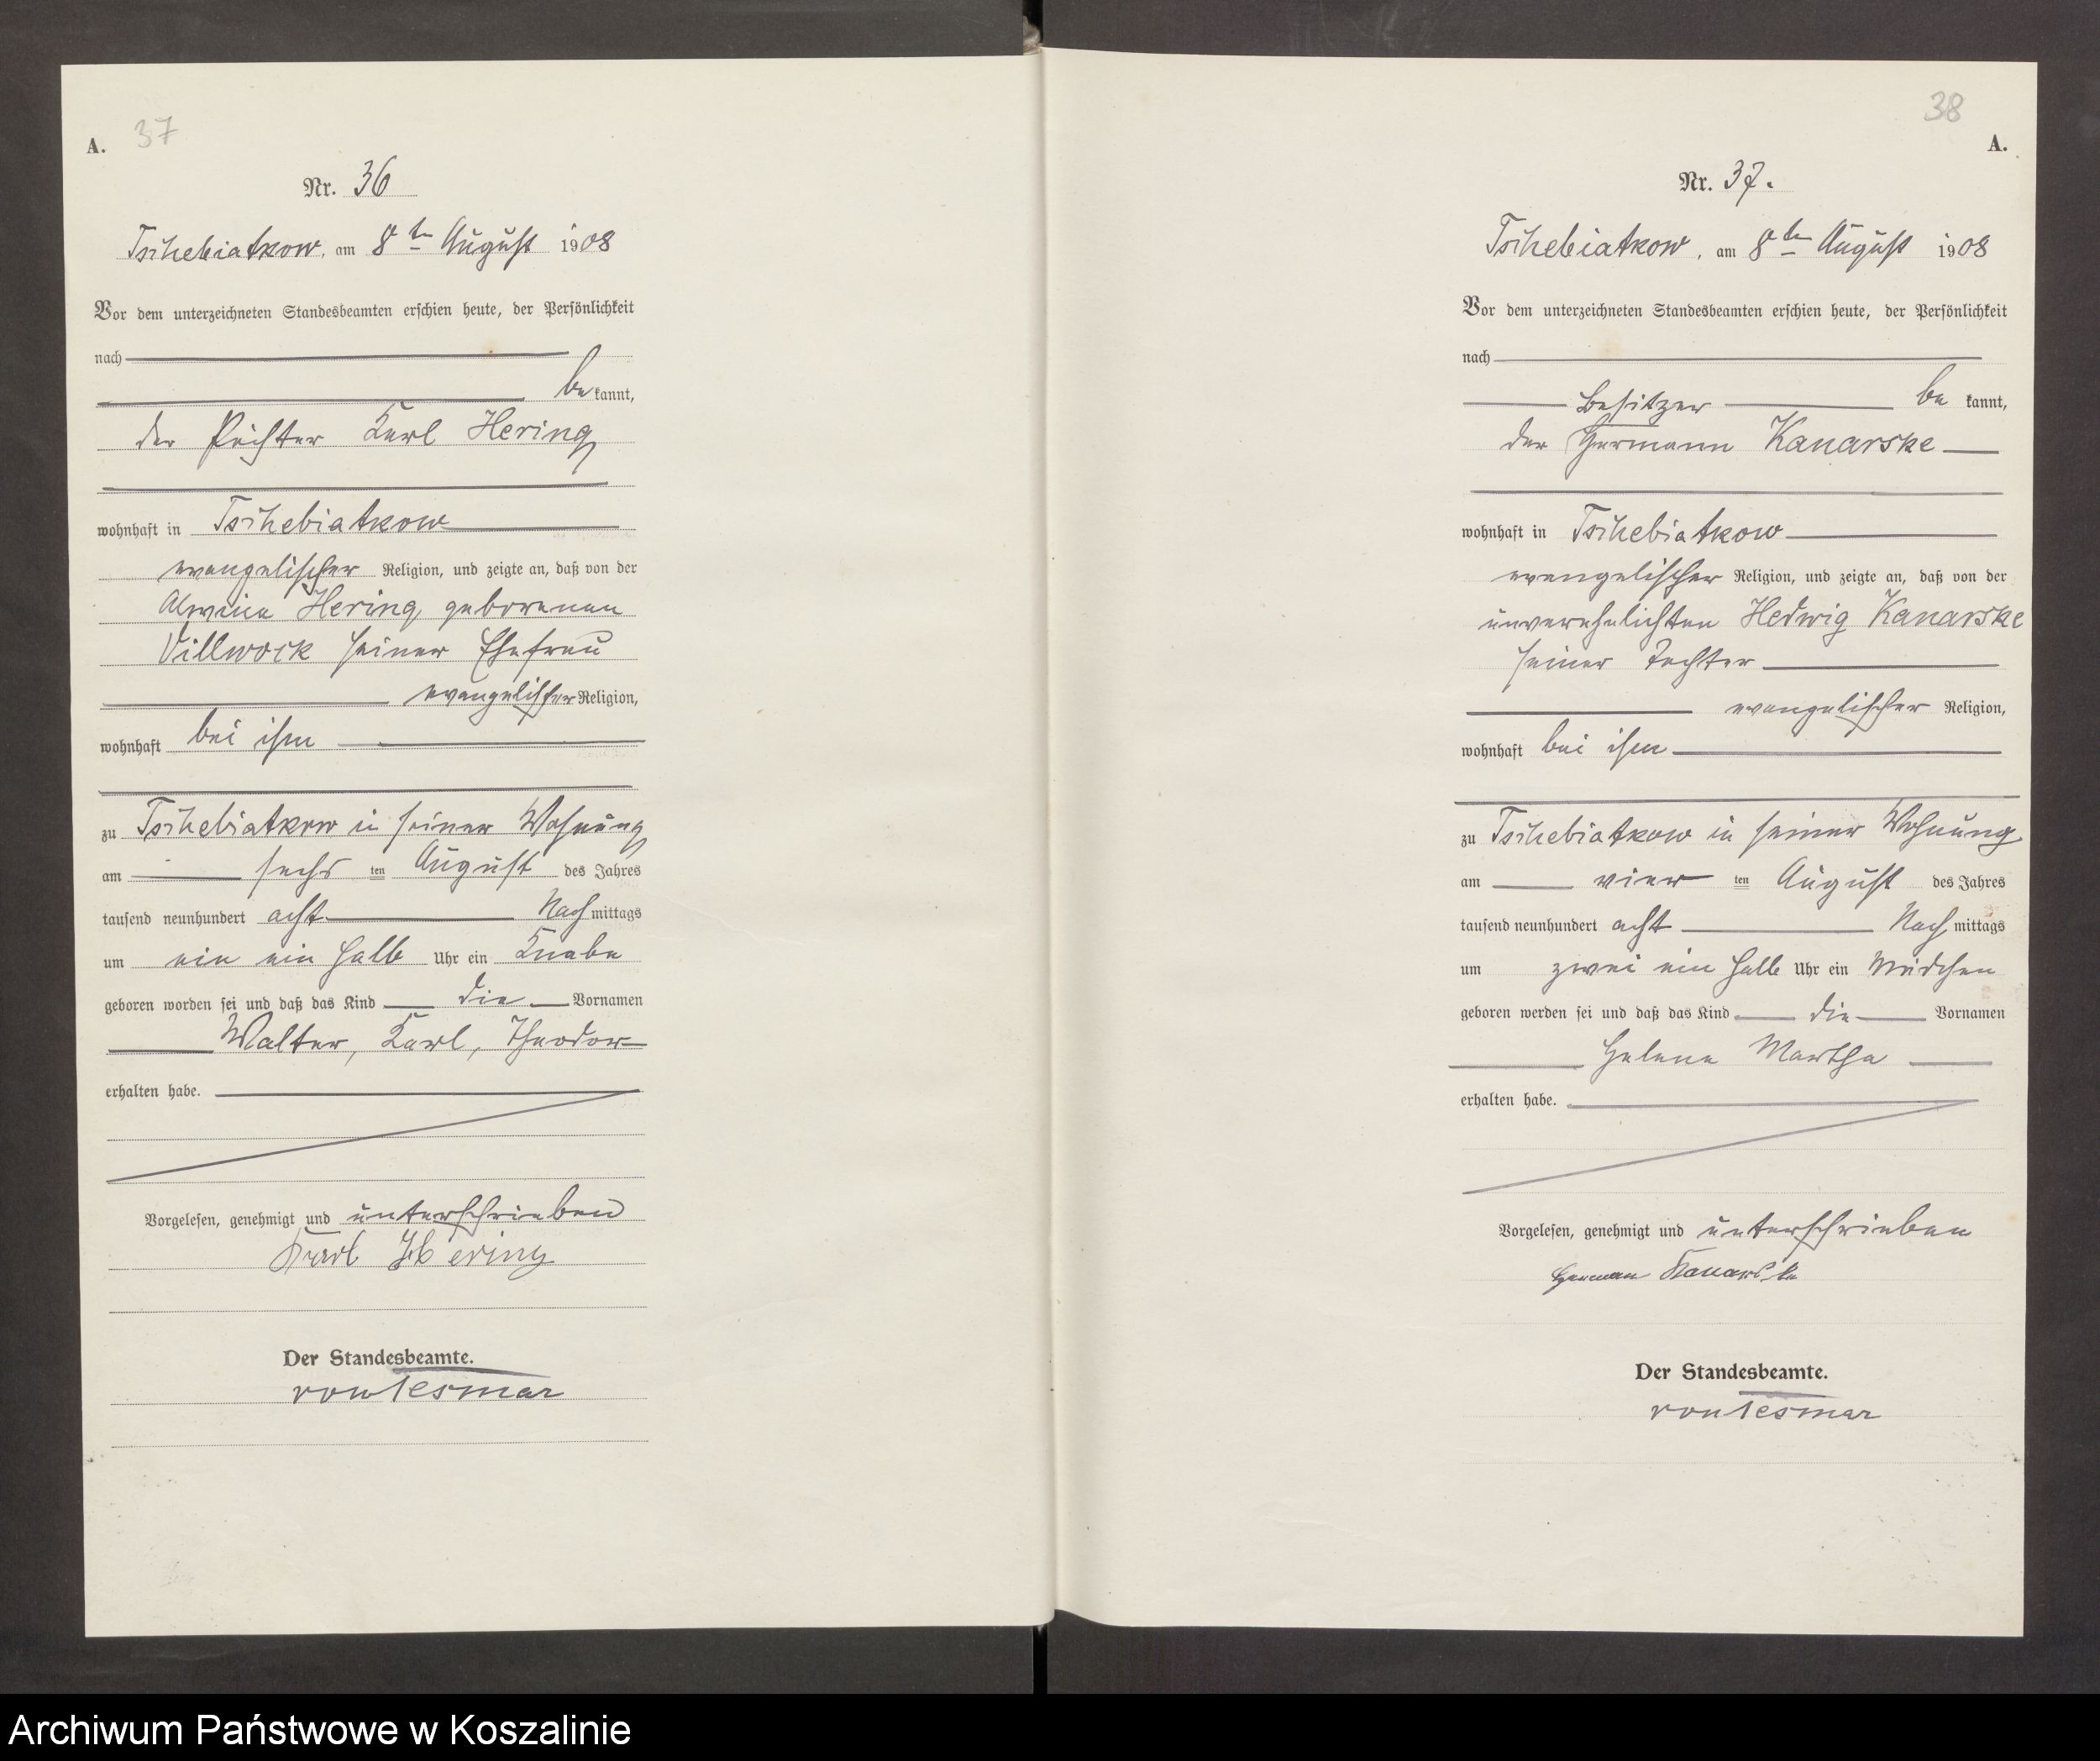 37
A.
Nr. 36
Tschebiatkow, am 8ten August 1908
Vor dem unterzeichneten Standesbeamten erschien heute, der Persönlichkeit
nach
be kannt,
der Pächter Karl Hering
wohnhaft in Tschebiatkow
evangelischer Religion, und zeigte an, daß von der
Alwine Hering geborenen
Villwock seiner Ehefrau
evangelischer Religion,
wohnhaft bei ihm
zu Tschebiatkow in seiner Wohnung
am sechs ten August des Jahres
tausend neunhundert acht Nach mittags
um ein ein halb Uhr ein Knabe
geboren worden sei und daß das Kind die Vornamen
Walter, Karl, Theodor
erhalten habe.
Vorgelesen, genehmigt und unterschrieben
Karl Hering
Der Standesbeamte.
von Tesmar
38
A.
Nr. 37.
Tschebiatkow, am 8ten August 1908
Vor dem unterzeichneten Standesbeamten erschien heute, der Persönlichkeit
nach
Besitzer be kannt,
der Hermann Kanarske
wohnhaft in Tschebiatkow
evangelischer Religion, und zeigte an, daß von der
unverehelichten Hedwig Kanarske
seiner Tochter
evangelischer Religion,
wohnhaft bei ihm
zu Tschebiatkow in seiner Wohnung
am vier ten August des Jahres
tausend neunhundert acht Nach mittags
um zwei ein halb Uhr ein Mädchen
geboren worden sei und daß das Kind die Vornamen
Helene Martha
erhalten habe.
Vorgelesen, genehmigt und unterschrieben
Herman Kanarske
Der Standesbeamte.
von Tesmar
Archiwum Państwowe w Koszalinie